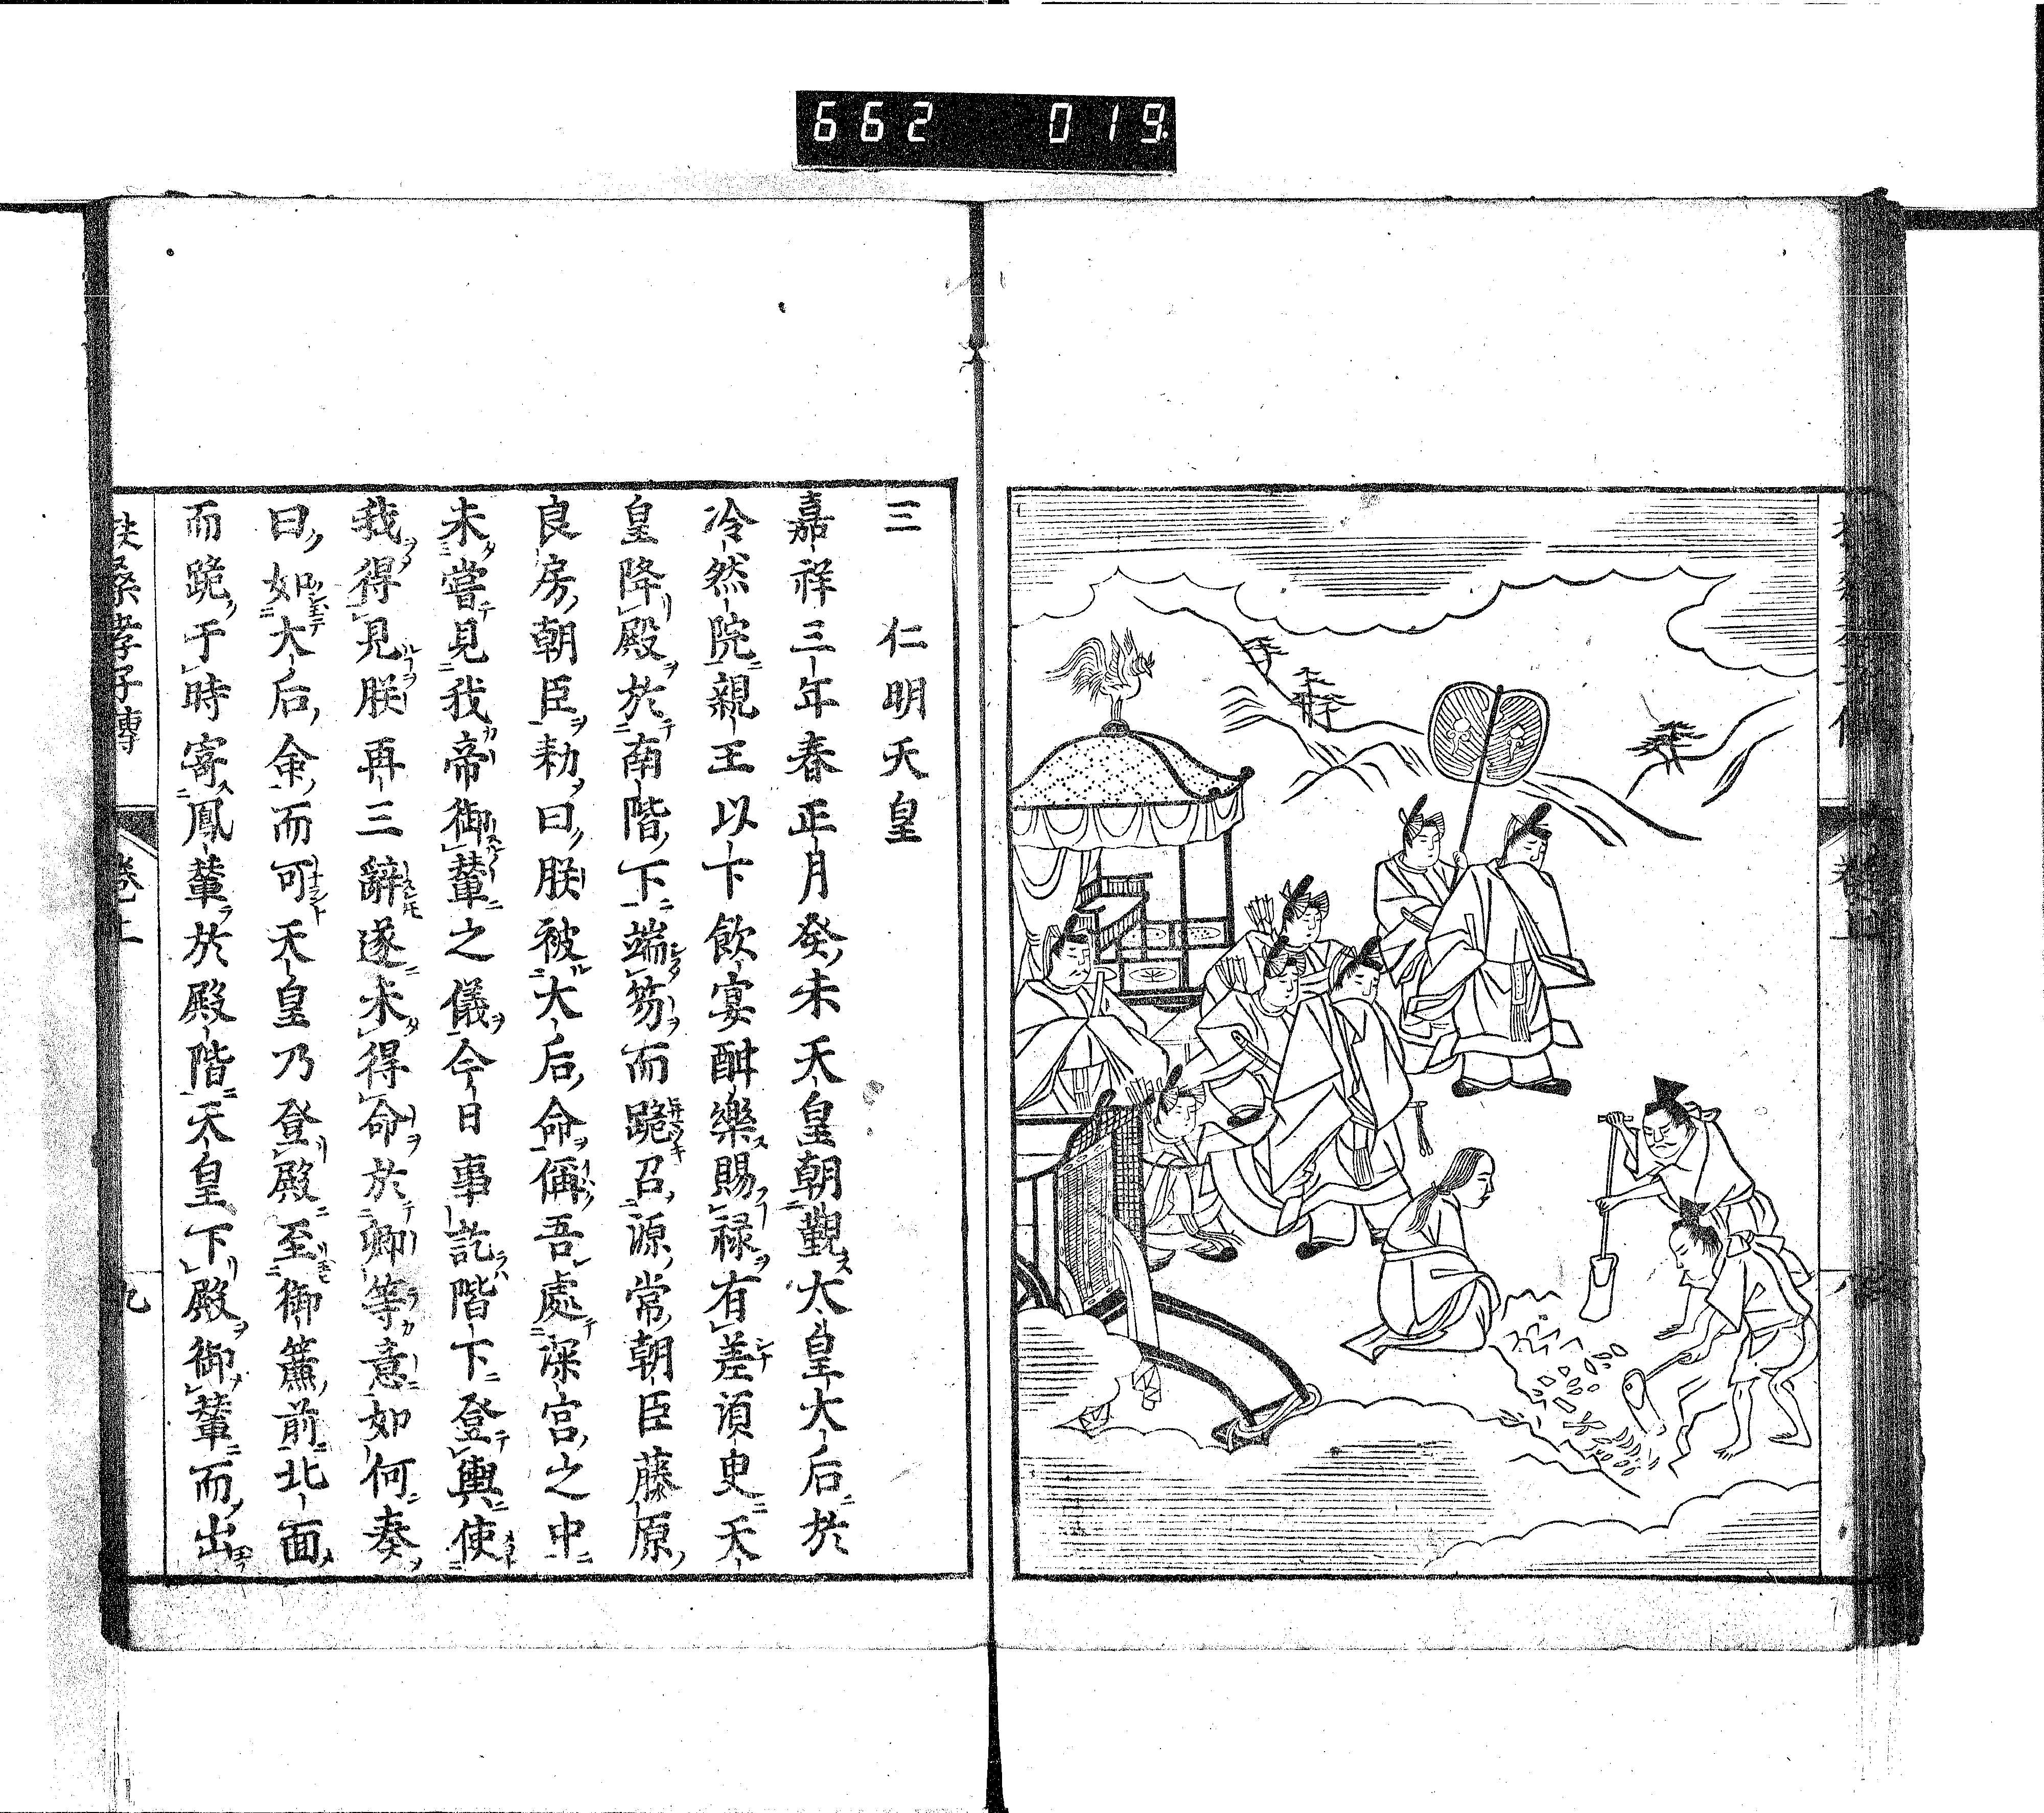 662 019
三 仁明天皇
嘉祥三年春正月癸未天皇朝覲大皇大后於
冷然院親王以下飲宴酣樂賜禄有差須臾天
皇降殿於南階下端笏而跪召源常朝臣藤原
良房朝臣勅曰朕被大后命偁吾處深宮之中
未嘗見我帝御輦之儀今日事訖階下登輿使
我得見朕再三辭遂未得命於卿等意如何奏
曰如大后命而可天皇乃登殿至御簾前北面
而跪于時寄鳳輦於殿階天皇下殿御輦而出
扶桑孝子傳 卷上 九